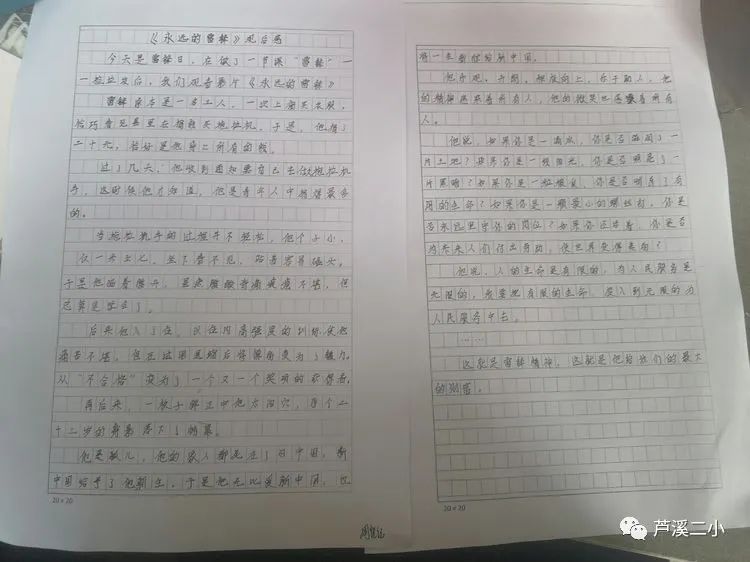 《永远的雷锋》观后感
今天是雷锋日,在做了一节课"雷锋"一
一捡垃圾后,我们观看影片《永远的雷锋》
雷锋原本是一名工人,一次上街买衣服,
恰巧看见县里在捐钱买拖拉机,于是,他捐了
二十元,恰好是他身上所有的钱。
过了几天,他收到通知要自己去做拖拉机
手,这时候他才知道,他是青年人中捐得最多
的。
当拖拉机手的过程并不轻松,他个子小,
仅一米五七,坐下看不见,站着容易磕头。
于是他猫着腰开,虽然腰酸背痛疲惫不堪,但
还算是学会了。
后来他入了伍,以在内高强度的训练使他
痛苦不堪,但在过困思娟后将难痛变为了魅力,
从"不合格"变为了一个又一个奖项的获得者。
再后来,一根子弹正中他太阳穴,为个二
十二岁的青春落下了帷幕。
他是孤儿,他的家人都死在了旧中国,新
中国给予了他新生,于是他无比爱新中国,也
将一生献给新中国。
他乐观、开朗、积极向上,乐于助人,他
的精神感染着所有人,他的微笑也感染着所有
人。
他说,如果你是一滴水,你是否滋润了一
片土地?如果你是一线阳光,你是否照亮了一
片黑暗?如果你是一粒粮食,你是否哺育了有
用的生命?如果你是一颗最小的螺丝钉,你是
否永远坚守你的岗位?如果你还活着,你是否
为未来人们付出劳动,使世界变得美丽?
他说,人的生命是有限的,为人民服务是
无限的,我要把有限的生命,投入到无限的为
人民服务中去。
……
这就是雷锋精神,这就是他给我们的最大
的财富。
20×20
20×20
芦溪二小